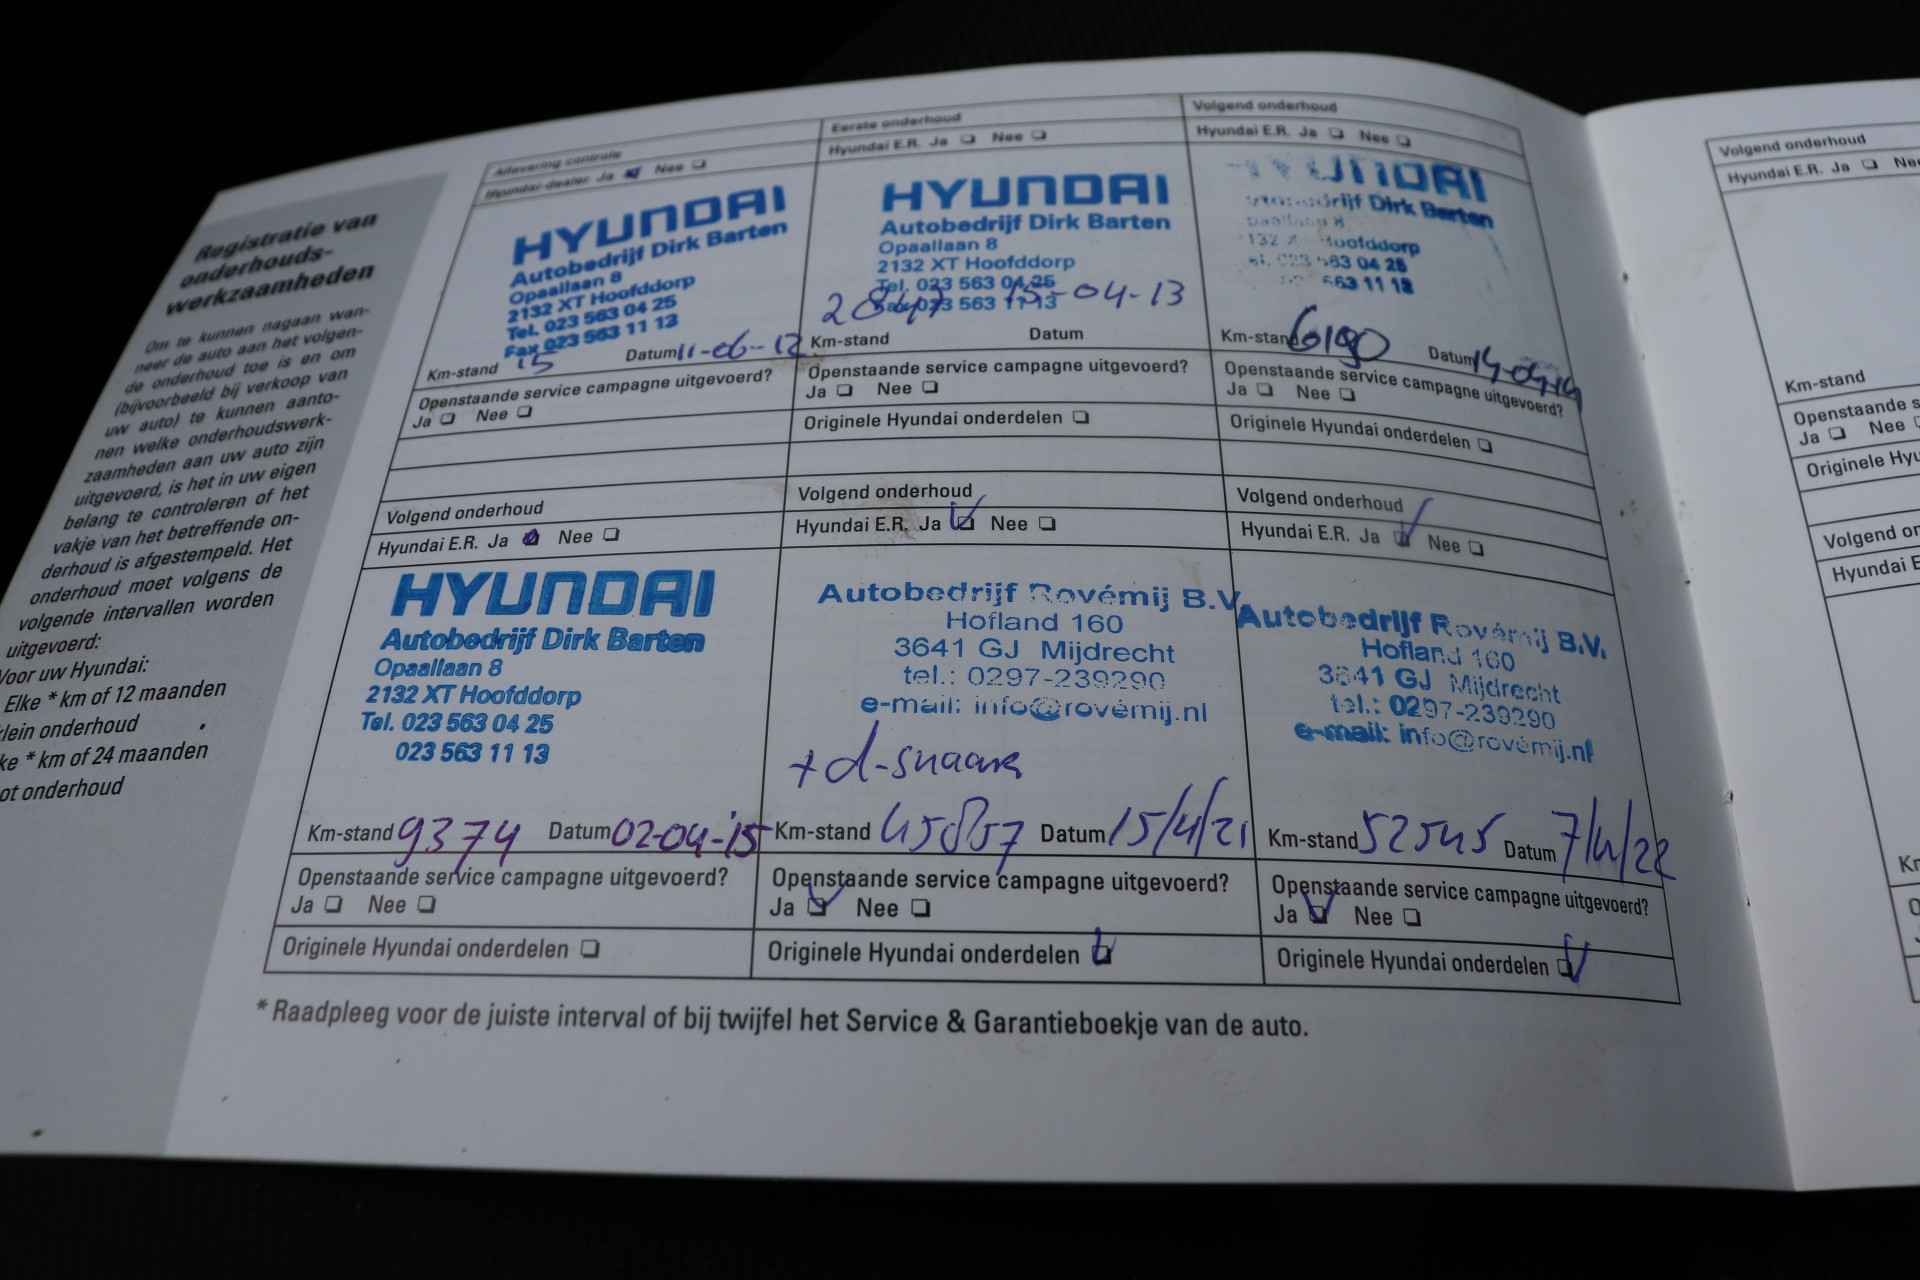 Registratie van
onderhouds-
werkzaamheden
Om te kunnen nagaan wan-
neer de auto aan het volgen-
de onderhoud toe is en om
(bijvoorbeeld bij verkoop van
uw auto) te kunnen aanto-
nen welke onderhoudswerk-
zaamheden aan uw auto zijn
uitgevoerd, is het in uw eigen
belang te controleren of het
vakje van het betreffende on-
derhoud is afgestempeld. Het
onderhoud moet volgens de
volgende intervallen worden
uitgevoerd:
Voor uw Hyundai:
Elke * km of 12 maanden
klein onderhoud
ke * km of 24 maanden
ot onderhoud
Aflevering controle
Hyundai-dealer Ja Nee
HYUNDAI
Autobedrijf Dirk Barten
Opaallaan 8
2132 XT Hoofddorp
Tel. 023 563 04 25
Fax 023 563 11 13
Km-stand 15 Datum 11-06-12
Openstaande service campagne uitgevoerd?
Ja Nee
Eerste onderhoud
Hyundai E.R. Ja Nee
HYUNDAI
Autobedrijf Dirk Barten
Opaallaan 8
2132 XT Hoofddorp
Tel. 023 563 04 25
Fax 023 563 11 13
-04-13
Km-stand Datum
Openstaande service campagne uitgevoerd?
Ja Nee
Originele Hyundai onderdelen
Volgend onderhoud
Hyundai E.R. Ja Nee
HYUNDAI
Dirk Barten
Hoofddorp
563 04 25
563 11 13
Km-stand 6190 Datum
Openstaande service campagne uitgevoerd?
Ja Nee
Originele Hyundai onderdelen
Volgend onderhoud
Hyundai E.R. Ja Nee
HYUNDAI
Autobedrijf Dirk Barten
Opaallaan 8
2132 XT Hoofddorp
Tel. 023 563 04 25
023 563 11 13
Km-stand 9374 Datum 02-04-'15
Openstaande service campagne uitgevoerd?
Ja Nee
Originele Hyundai onderdelen
Volgend onderhoud
Hyundai E.R. Ja Nee
Autobedrijf Rovémij B.V.
Hofland 160
3641 GJ Mijdrecht
tel.: 0297-239290
e-mail: info@rovémij.nl
+ d-snaar
Km-stand 45857 Datum 15/4/21
Openstaande service campagne uitgevoerd?
Ja Nee
Originele Hyundai onderdelen
Volgend onderhoud
Hyundai E.R. Ja Nee
Autobedrijf Rovémij B.V.
Hofland 160
3641 GJ Mijdrecht
tel.: 0297-239290
e-mail: info@rovémij.nl
Km-stand 52545 Datum 7/4/22
Openstaande service campagne uitgevoerd?
Ja Nee
Originele Hyundai onderdelen
* Raadpleeg voor de juiste interval of bij twijfel het Service & Garantieboekje van de auto.
Volgend onderhoud
Hyundai E.R. Ja Nee
Km-stand
Openstaande s
Ja Nee
Originele Hyu
Volgend on
Hyundai E